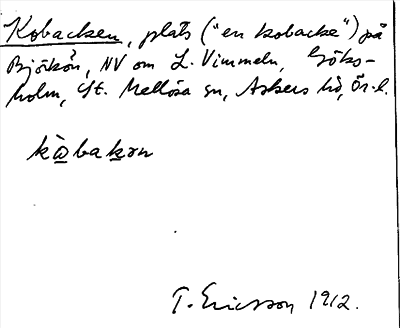 Kobacken, plats ("en kobacke") på
Björkön, NV om L. Vimmeln, Göks-
holm, St. Mellösa sn, Askers hd, Ör. l.
T. Ericsson 1912.